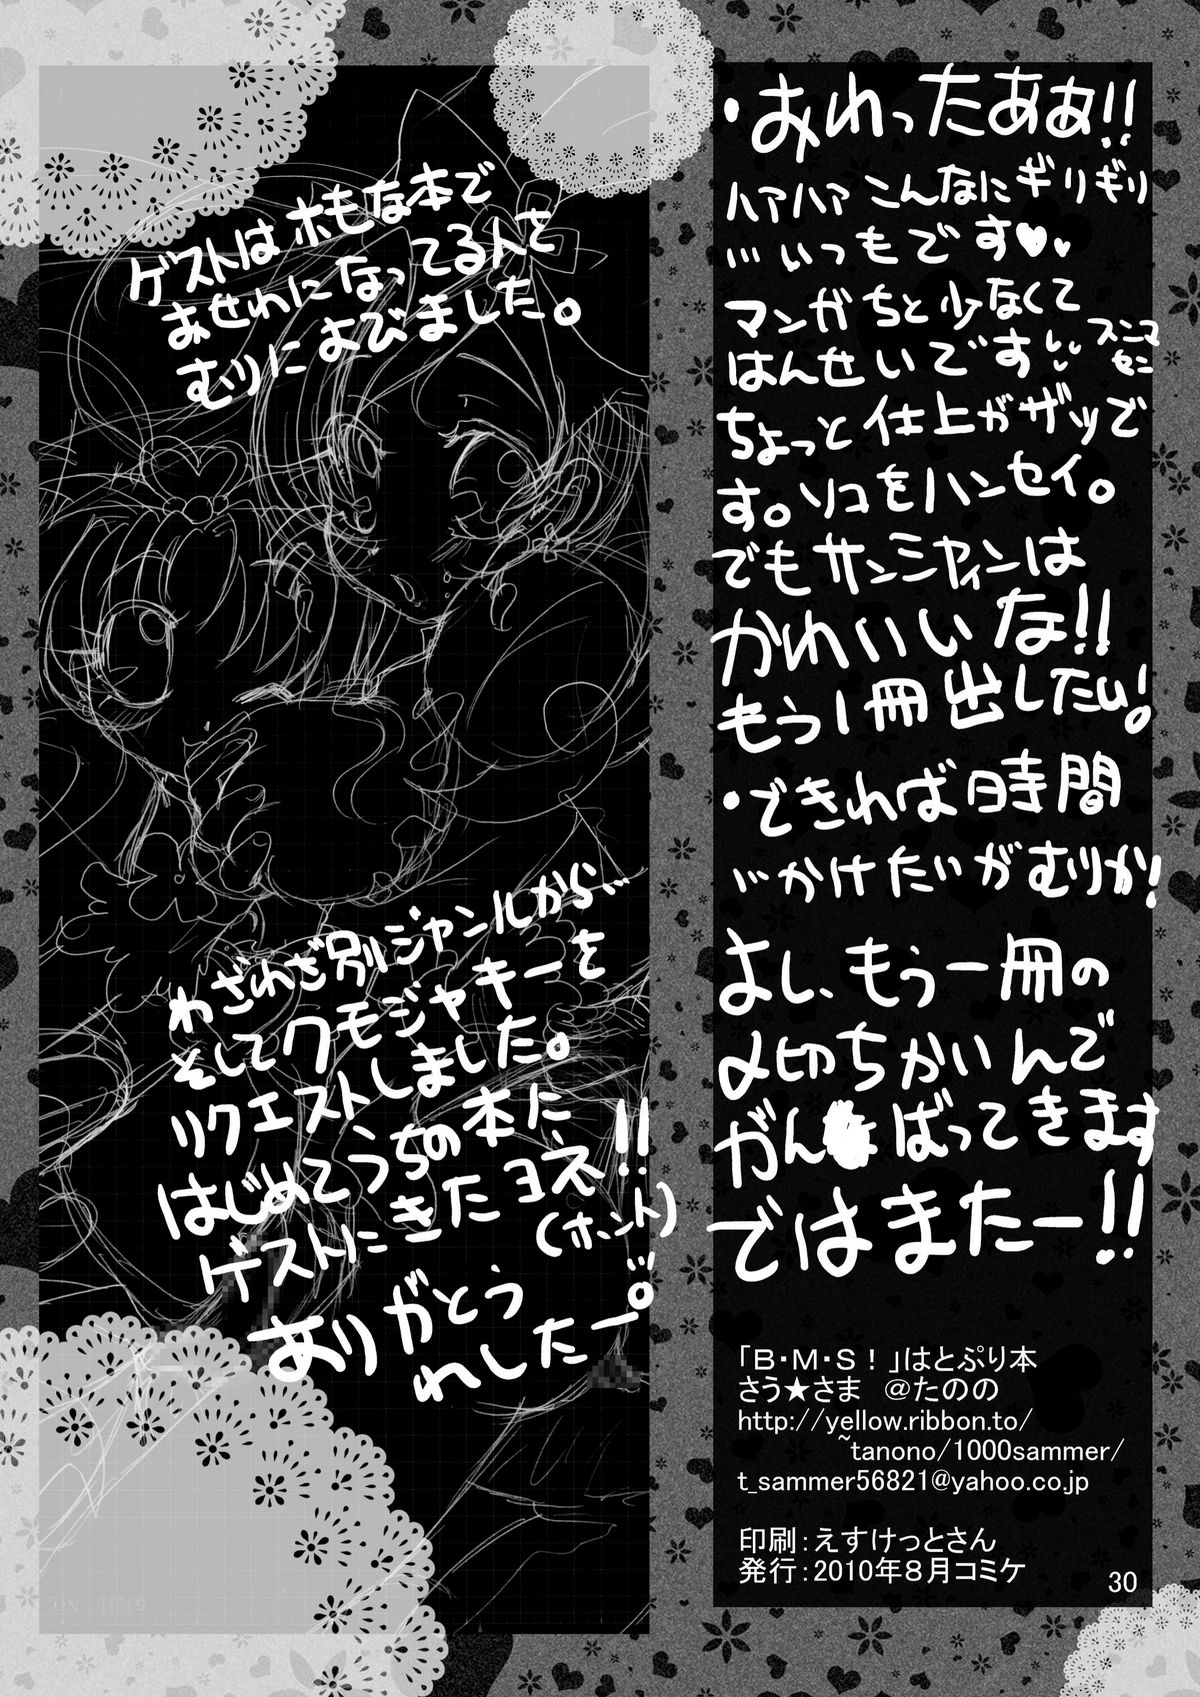 ・おわったぁあ!!
ハアハア こんなにギリギリ
…いつもです♥♥
マンガちと少なくて
はんせいです スミマセン
ちょっと仕上がザッで
す。ソコをハンセイ。
でもサンシャインは
かわいいな!!
もう1冊出したい!
・できれば時間
…かけたいがむりか!
よし、もう一冊の
〆切ちかいんで
がんばってきます
ではまたー!!
ゲストはホモな本で
おせわになってる人さ
むりによびました。
わざわざ別ジャンルから…
そしてクモジャキーを
リクエストしました。
はじめてうちの本に
ゲストにきたヨネ!!
(ホント)
ありがとう
れしたー。
「B・M・S!」はとぷり本
さう★さま @たのの
http://yellow.ribbon.to/
~tanono/1000sammer/
t_sammer56821@yahoo.co.jp
印刷:えすけっとさん
発行:2010年8月コミケ
30